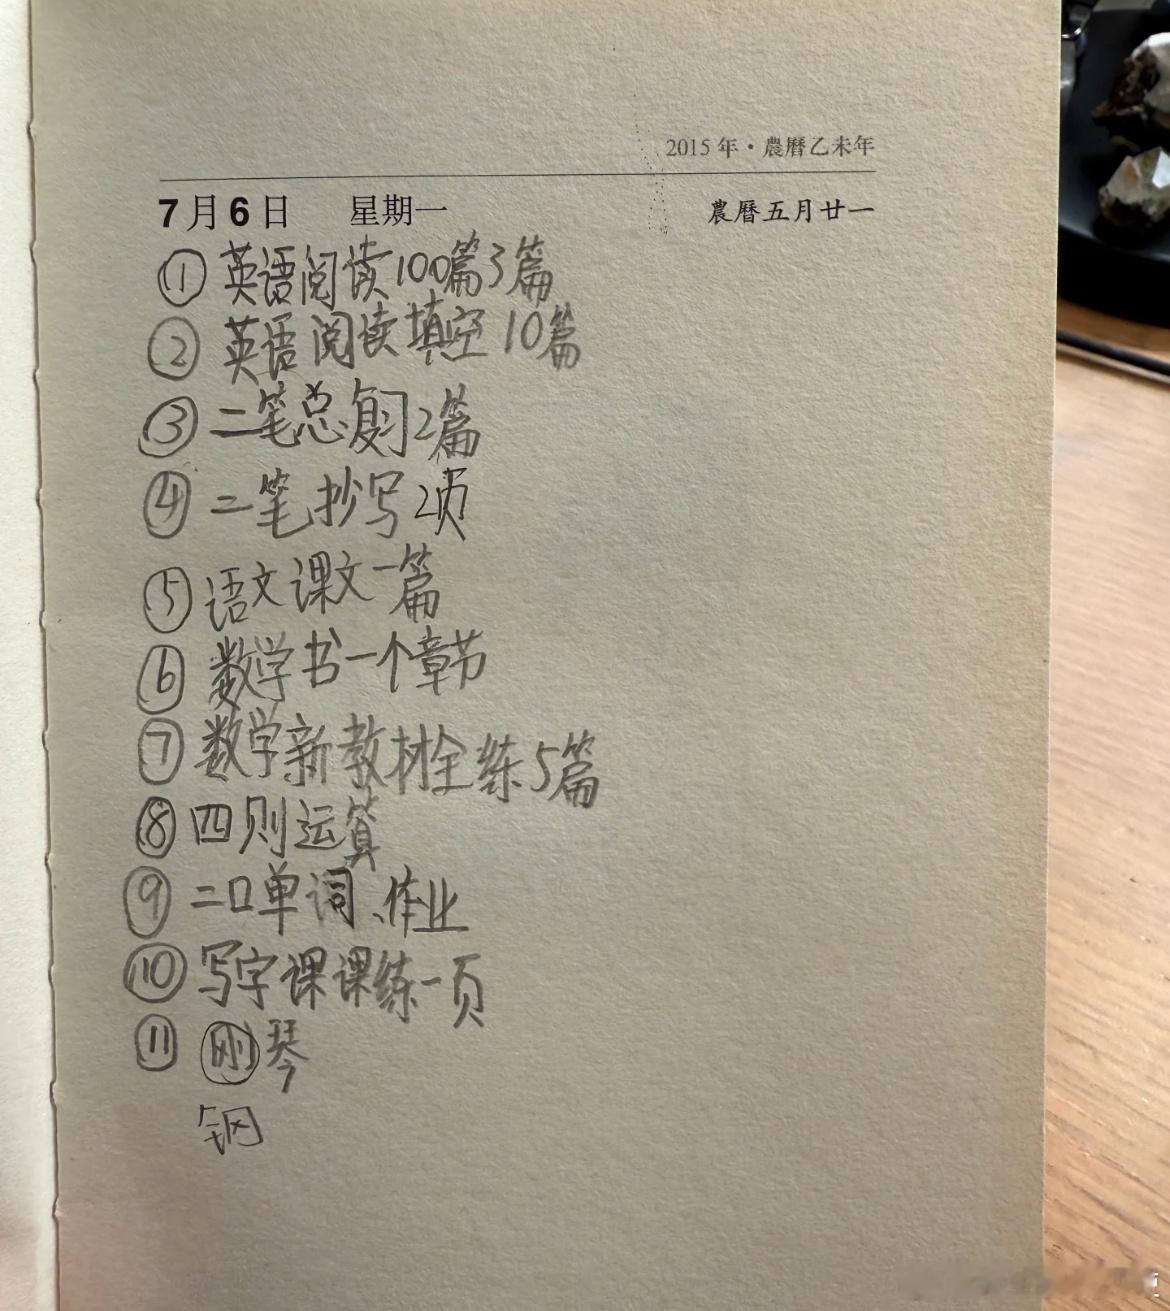 2015年·農曆乙未年
7月6日 星期一 農曆五月廿一
① 英语阅读100篇3篇
② 英语阅读填空10篇
③ 二笔总复习2篇
④ 二笔抄写2页
⑤ 语文课文一篇
⑥ 数学书一个章节
⑦ 数学新教材全练5篇
⑧ 四则运算
⑨ 二口单词、作业
⑩ 写字课课练一页
⑪ 刚琴
钢